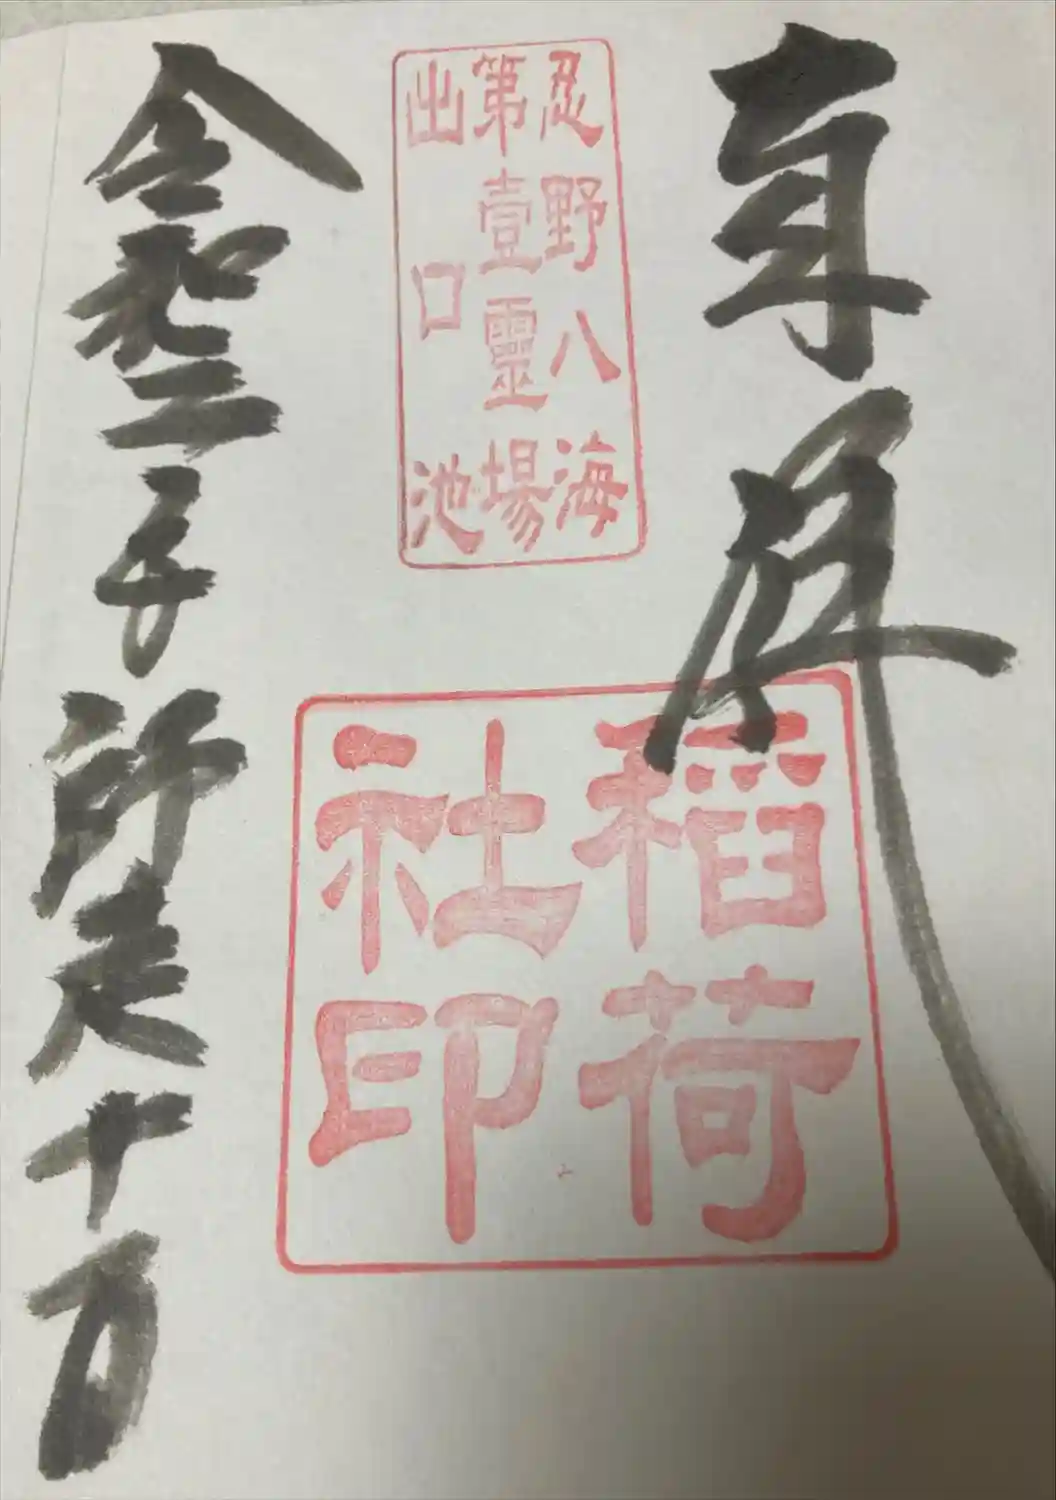 奉拝
忍野八海
第壹靈場
出口池
稲荷
社印
令和二年師走十日